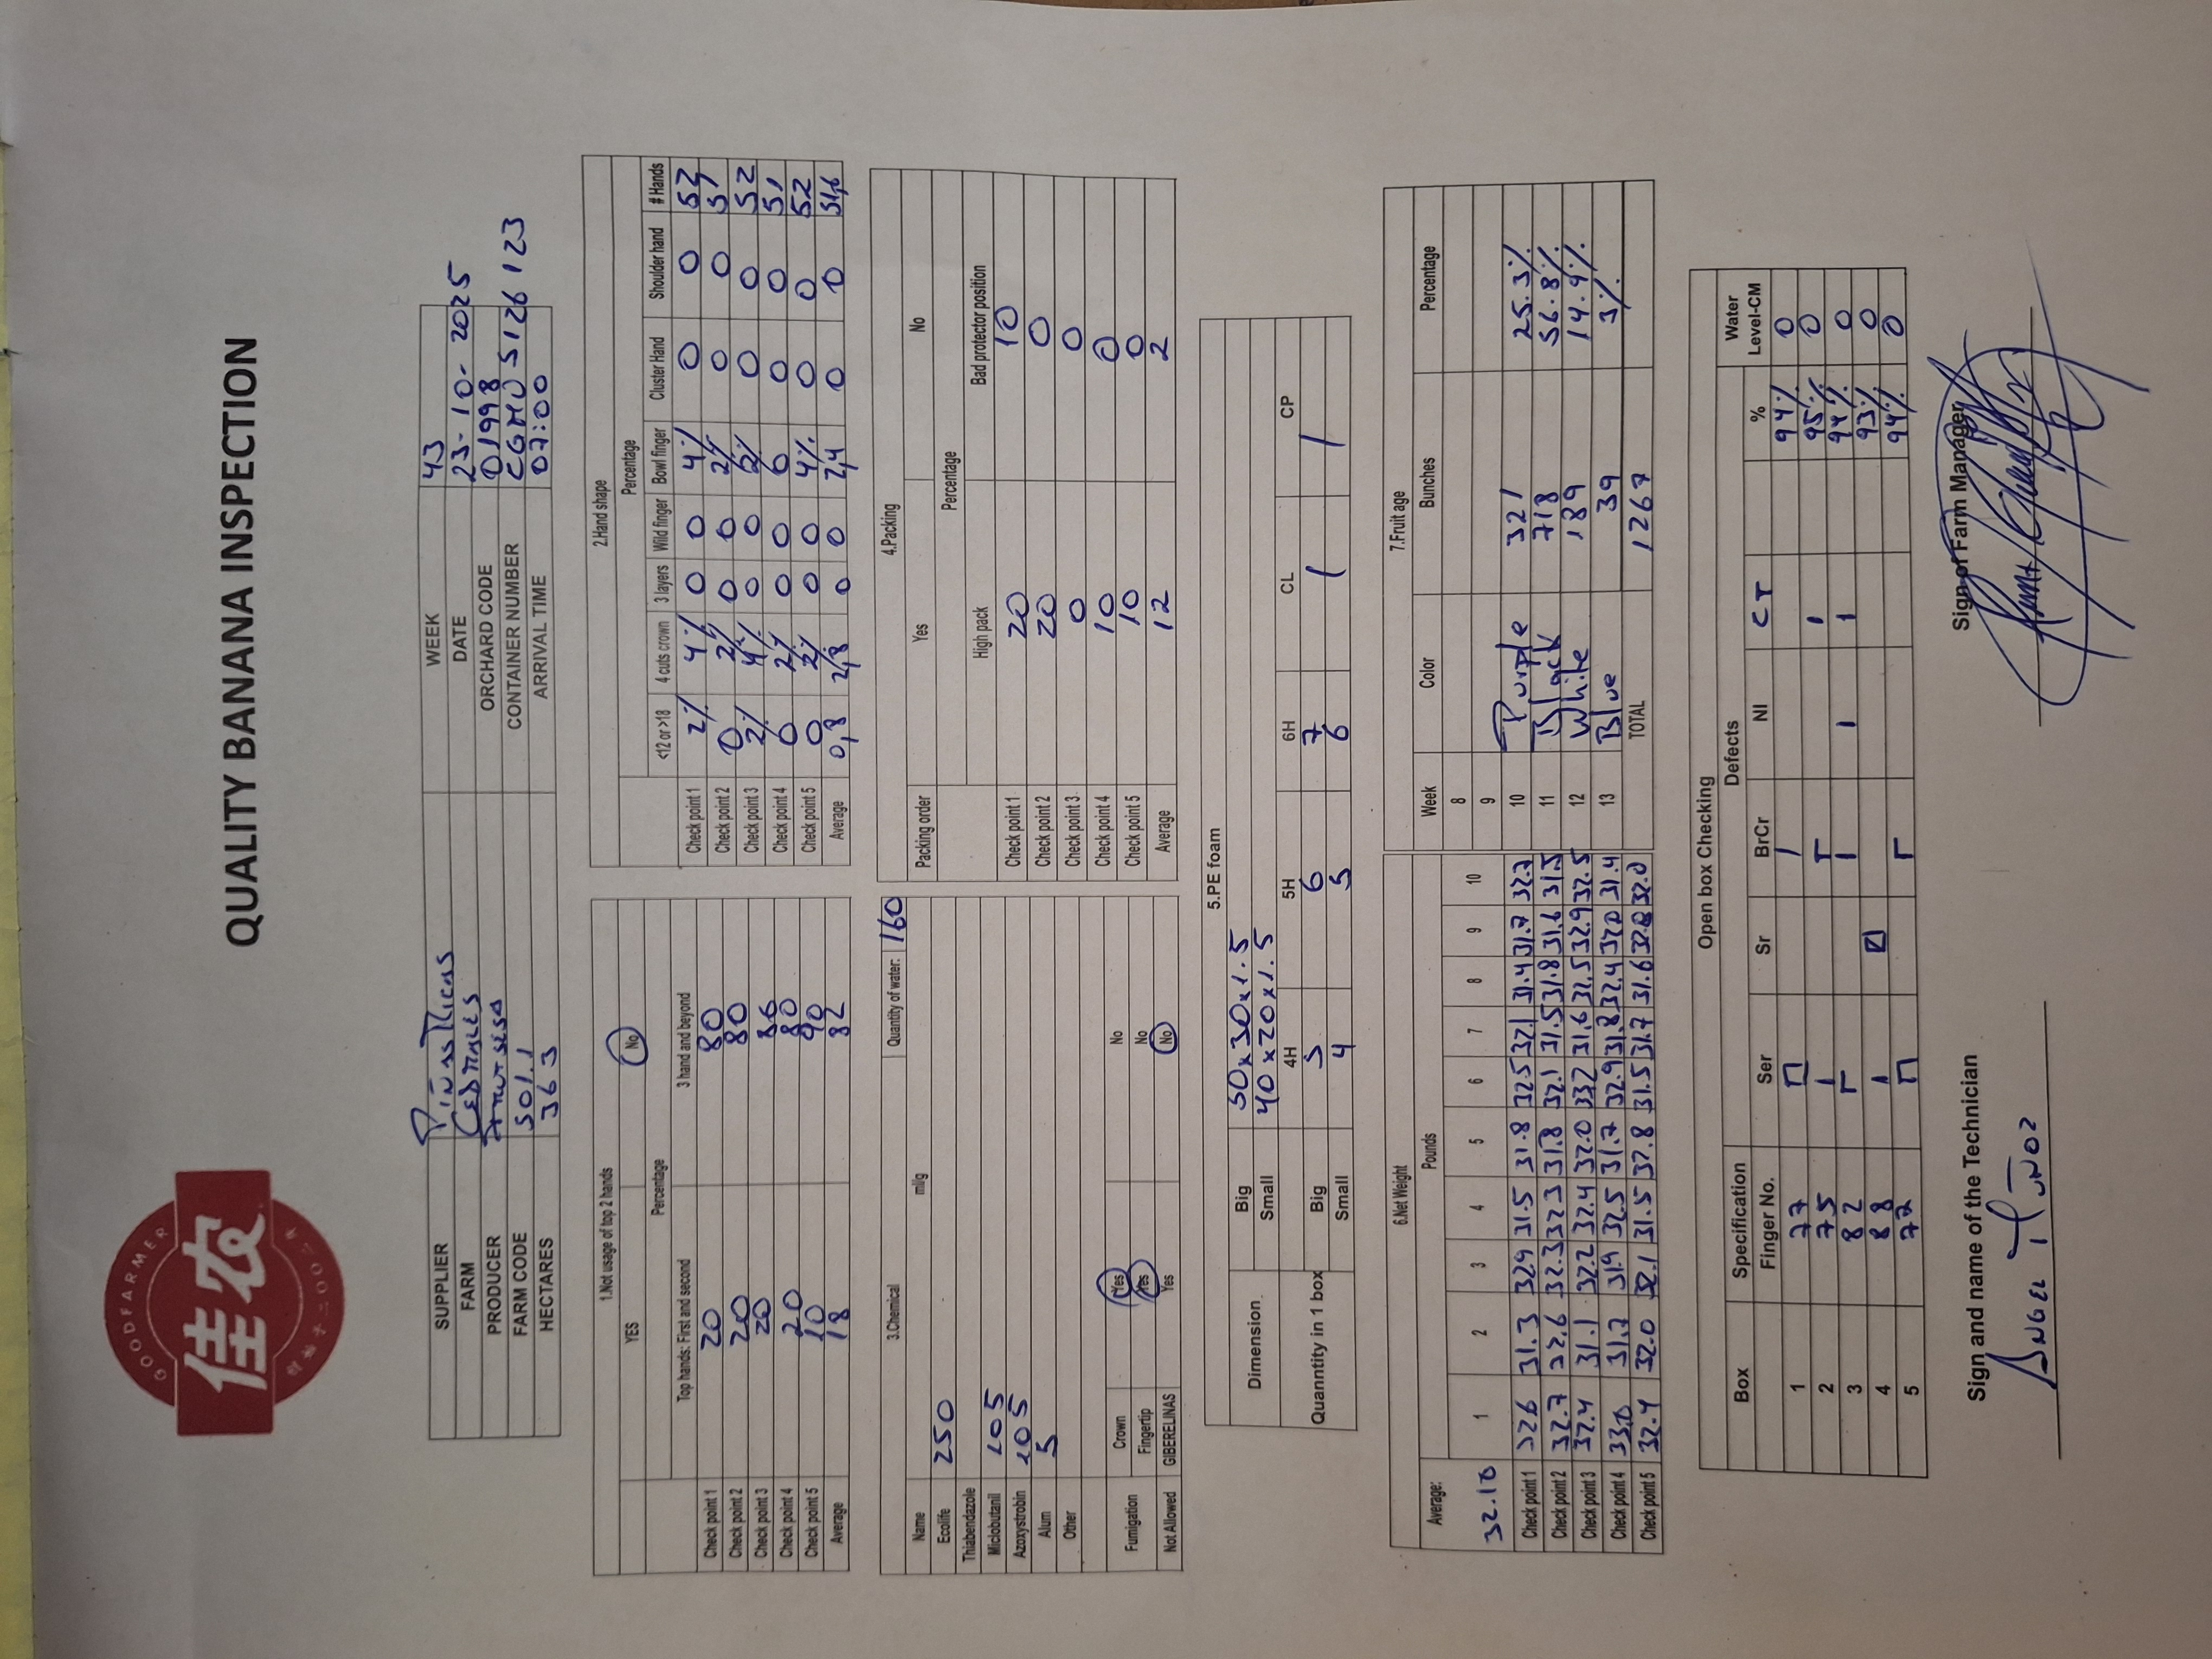 GOODFARMER
佳农
创始于二〇〇二年
QUALITY BANANA INSPECTION
SUPPLIER Piñas Ricas WEEK 43
FARM CEDRALES DATE 23-10-2025
PRODUCER ORCHARD CODE 01998
FARM CODE 501.1 CONTAINER NUMBER CGMU 5126123
HECTARES 363 ARRIVAL TIME 07:00
1.Not usage of top 2 hands
YES No
Percentage
Top hands: First and second 3 hand and beyond
Check point 1 20 80
Check point 2 20 80
Check point 3 20 86
Check point 4 20 80
Check point 5 10 90
Average 18 82
2.Hand shape
Percentage
<12 or >18 4 cuts crown 3 layers Wild finger Bowl finger Cluster Hand Shoulder hand # Hands
Check point 1 2% 4% 0 0 4% 0 0 52
Check point 2 0 2% 0 0 2% 0 0 51
Check point 3 2% 4% 0 0 2% 0 0 52
Check point 4 0 2% 0 0 0 0 0 51
Check point 5 0 2% 0 0 4% 0 0 52
Average 0,8 2,8 0 0 2,4 0 0 51,6
3.Chemical Quantity of water: 160
Name ml/g
Ecolife 250
Thiabendazole
Miclobutanil 105
Azoxystrobin 105
Alum 5
Other
Fumigation Crown Yes No
Fingertip Yes No
Not Allowed GIBERELINAS Yes No
4.Packing
Packing order Yes No
Percentage
High pack Bad protector position
Check point 1 20 10
Check point 2 20 0
Check point 3 0 0
Check point 4 10 0
Check point 5 10 0
Average 12 2
5.PE foam
Dimension Big 50x30x1.5
Small 40x20x1.5
4H 5H 6H CL CP
Quanntity in 1 box Big 5 6 7 / /
Small 4 5 6
6.Net Weight
Average: Pounds
32.10 1 2 3 4 5 6 7 8 9 10
Check point 1 32.6 31.3 32.9 31.5 31.8 32.5 32.1 31.4 31.7 32.7
Check point 2 32.7 32.6 32.3 32.3 31.8 32.1 31.5 31.8 31.6 31.5
Check point 3 32.4 31.1 32.2 32.4 32.0 33.2 31.6 32.5 32.9 32.5
Check point 4 33.0 31.7 31.9 32.5 31.7 32.9 31.8 32.4 32.0 31.4
Check point 5 32.4 32.0 32.1 31.5 32.8 31.5 31.7 31.6 32.8 32.0
7.Fruit age
Week Color Bunches Percentage
8
9
10 Purple 321 25.3%
11 Black 718 56.8%
12 White 189 14.9%
13 Blue 39 3%
TOTAL 1267
Open box Checking
Box Specification Defects Water
Finger No. Ser Sr BrCr NI CT % Level-CM
1 77 94% 0
2 75 95% 0
3 82 94% 0
4 88 93% 0
5 77 94% 0
Sign and name of the Technician Sign of Farm Manager
ANGEL MUÑOZ